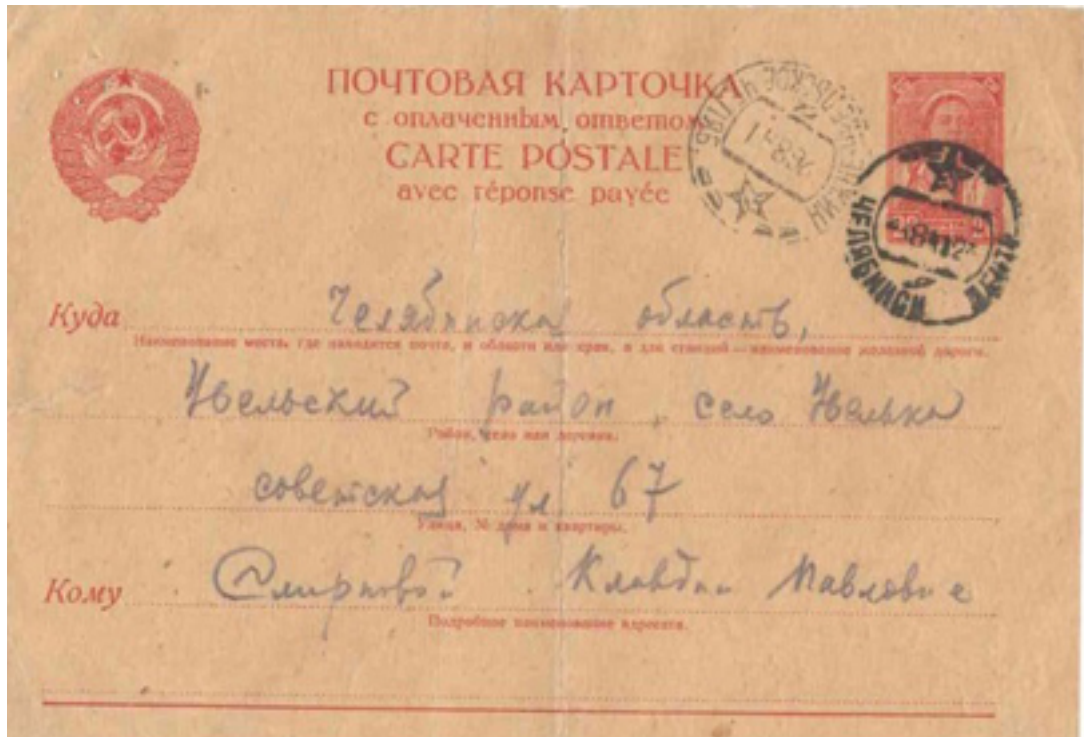 ПОЧТОВАЯ КАРТОЧКА
с оплаченным ответом
CARTE POSTALE
avec réponse payée
ЧЕЛЯБИНСК
Куда Челябинская область,
Наименование места, где находится почта, и области или края, а для станций — наименование железной дороги.
Увельский район село Увелька
Район, село или деревня.
советская ул 67
Улица, № дома и квартиры.
Кому Смирновой Клавдии Павловне
Подробное наименование адресата.